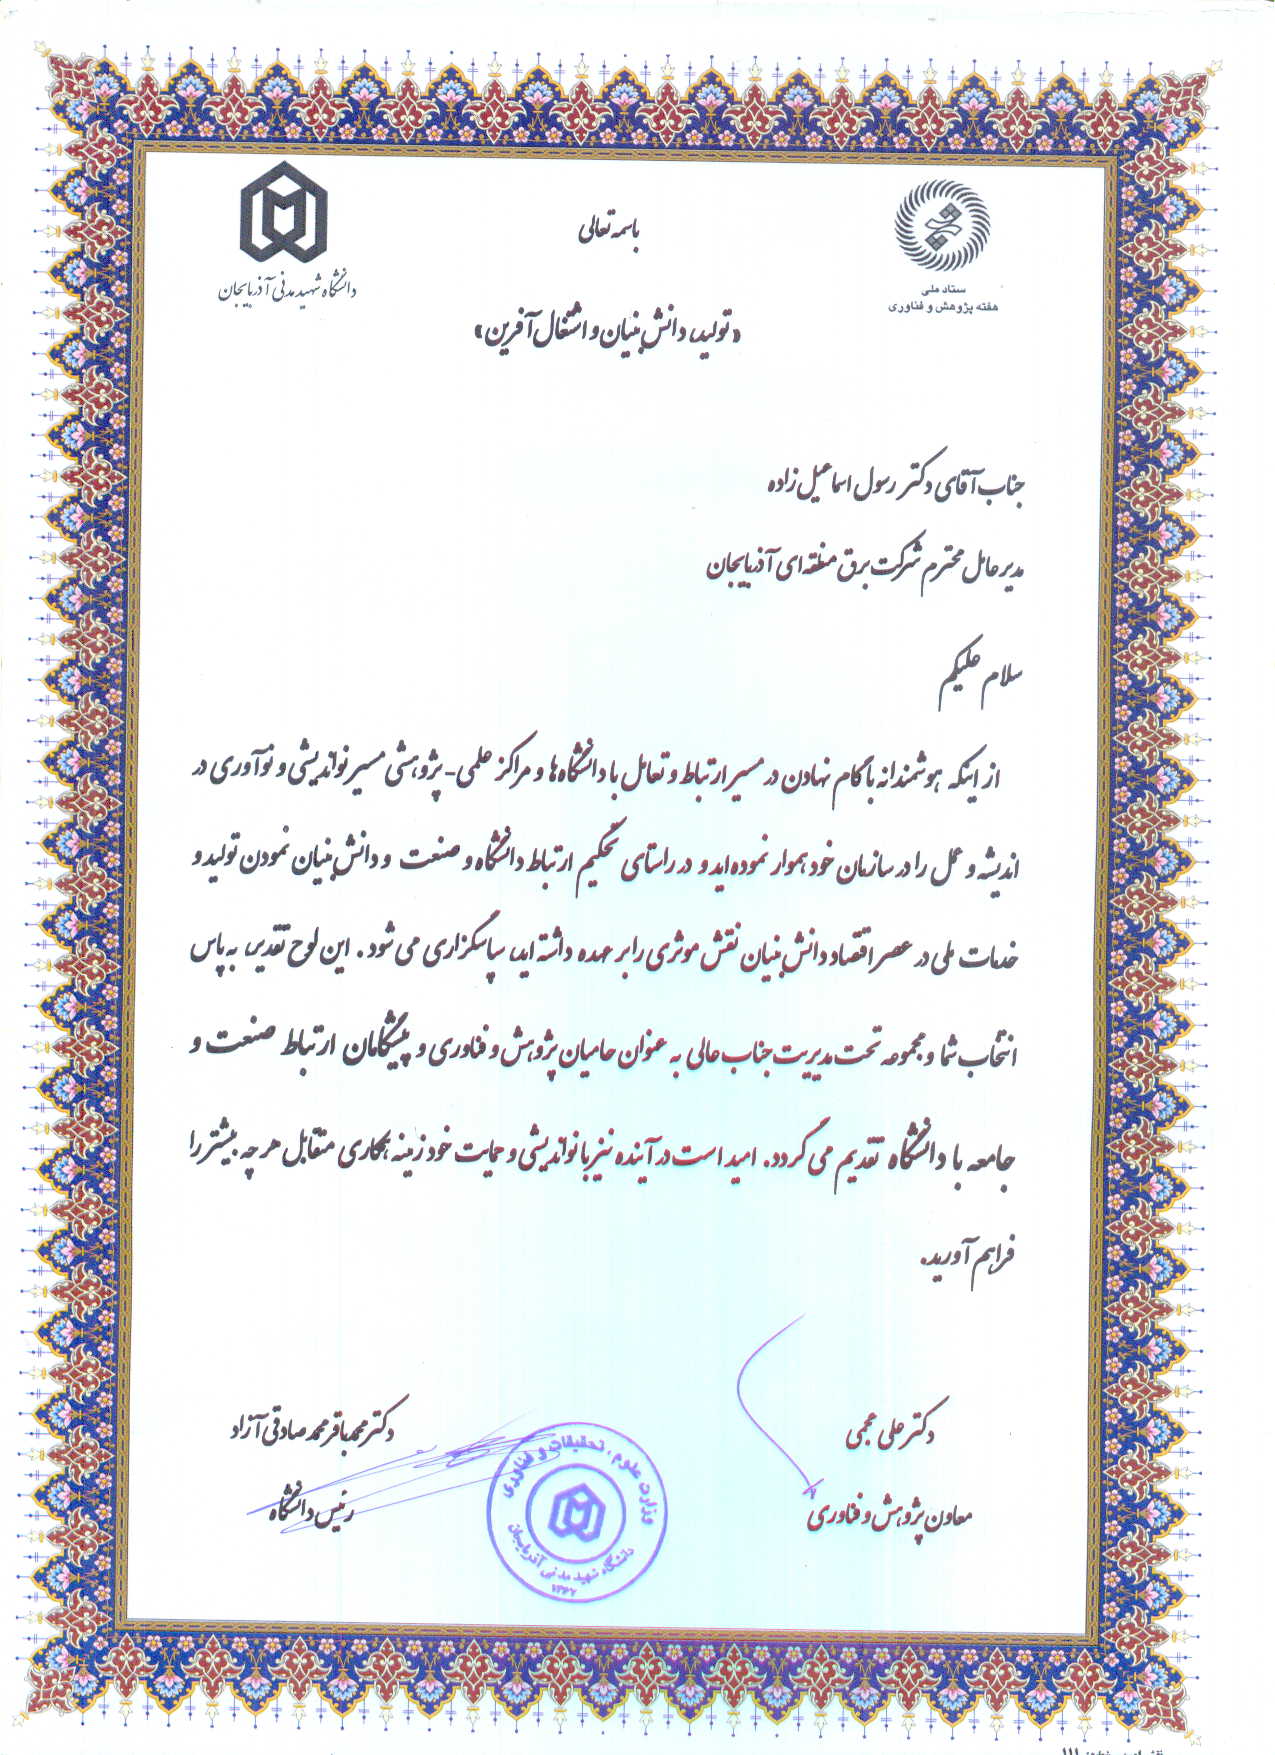 باسمه تعالی
ستاد ملی
هفته پژوهش و فناوری
دانشگاه شهید مدنی آذربایجان
«تولید، دانش بنیان و اشتغال آفرین»
جناب آقای دکتر رسول اسماعیل زاده
مدیر عامل محترم شرکت برق منطقه ای آذربایجان
سلام علیکم
از اینکه هوشمندانه با گام نهادن در مسیر ارتباط و تعامل با دانشگاه ها و مراکز علمی-پژوهشی مسیر نواندیشی و نوآوری در
اندیشه و عمل را در سازمان خود هموار نموده اید و در راستای تحکیم ارتباط دانشگاه و صنعت و دانش بنیان نمودن تولید و
خدمات ملی در عصر اقتصاد دانش بنیان نقش موثری را بر عهده داشته اید، سپاسگزاری می شود. این لوح تقدیر، به پاس
انتخاب شما و مجموعه تحت مدیریت جناب عالی به عنوان حامیان پژوهش و فناوری و پیشگامان ارتباط صنعت و
جامعه با دانشگاه تقدیم می گردد. امید است در آینده نیز با نواندیشی و حمایت خود زمینه همکاری متقابل هر چه بیشتر را
فراهم آورید.
دکتر علی عجمی
معاون پژوهش و فناوری
دکتر محمدباقر محمدصادقی آزاد
رئیس دانشگاه
وزارت علوم، تحقیقات و فناوری
دانشگاه شهید مدنی آذربایجان